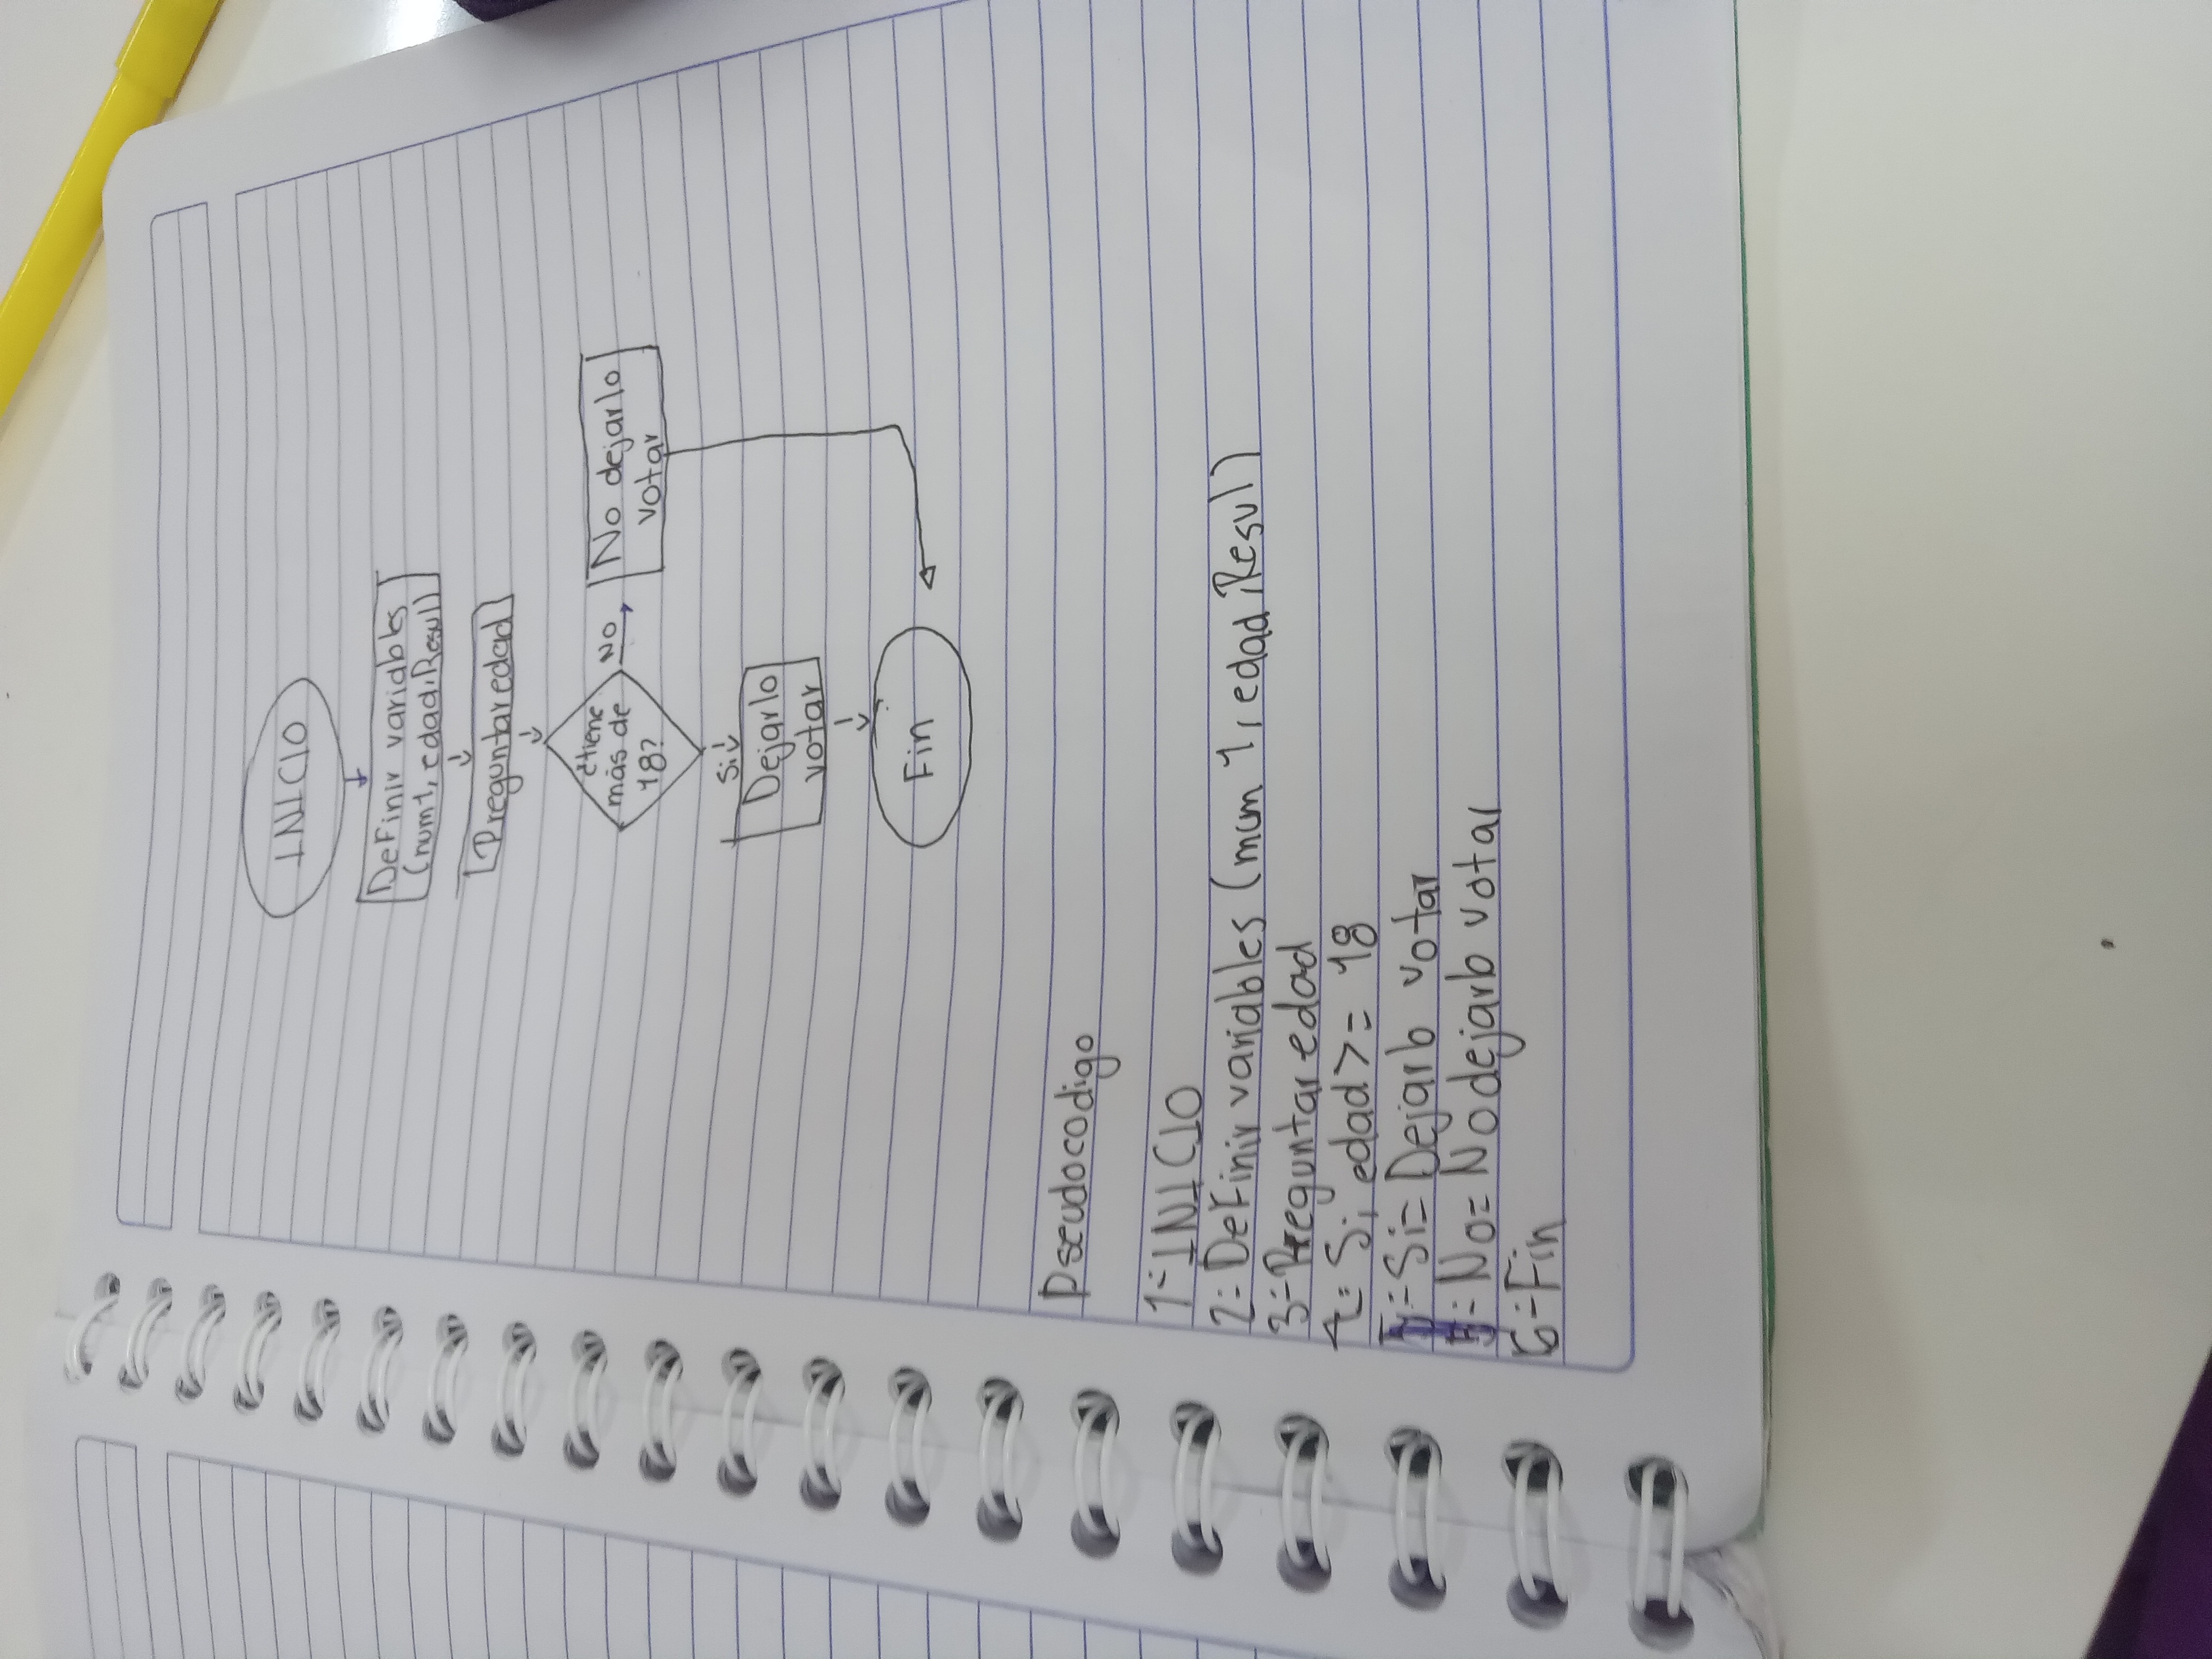 INICIO
Definir variables
(num1, edad, Resul)
Preguntar edad
¿tiene
más de
18?
No
No dejarlo
votar
Si
Dejarlo
votar
Fin
Pseudocodigo
1:-INICIO
2:-Definir variables (mum 1, edad, Resul)
3:-Preguntar edad
4:- Si, edad >= 18
5:-Si= Dejarlo votar
5:-No= No dejarlo votar
6:-Fin